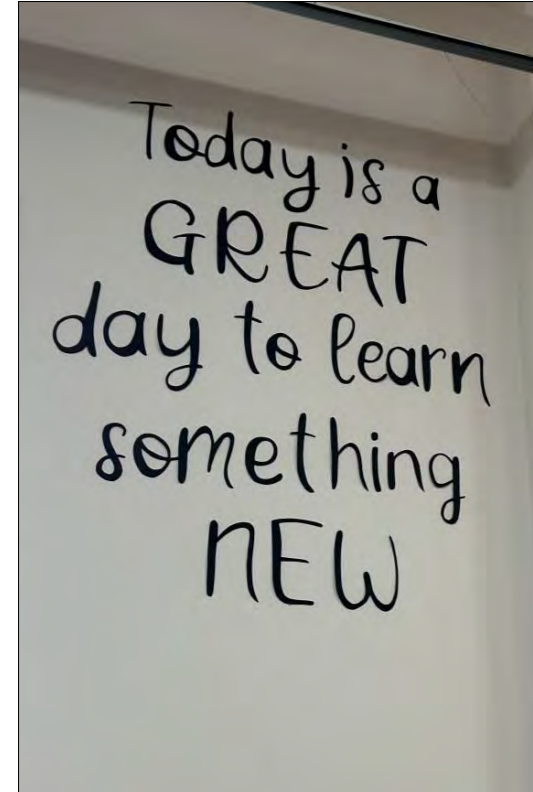 Today is a
GREAT
day to learn
something
NEW